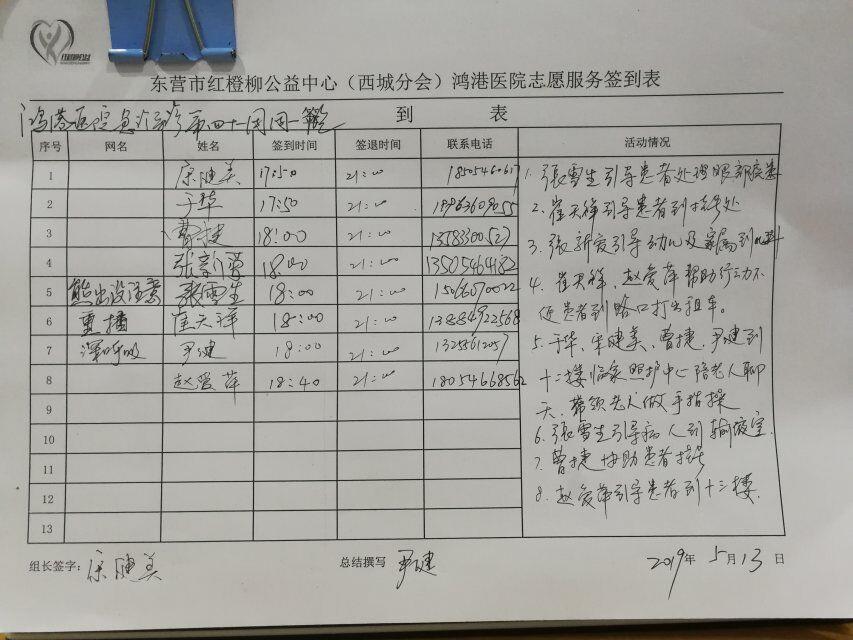 东营市红橙柳公益中心（西城分会）鸿港医院志愿服务签到表
鸿港医院 第四十一周周一
到 表
序号 网名 姓名 签到时间 签退时间 联系电话 活动情况
1 宋健美 17:50 21:00 1850546061
2 于华 17:50 21:00
3 曹捷 18:00 21:00 13783300527
4 张新爱 18:00 21:00 13505464182
5 熊出没注意 张雪生 18:00 21:00 15066070022
6 重播 崔天祥 18:00 21:00
7 深呼吸 尹健 18:00 21:00
8 赵爱萍 18:40 21:00 18054668562
9
10
11
12
13
1. 张雪生引导患者处理眼部疾患
2. 崔天祥引导患者到挂号处
3. 张新爱引导幼儿及家属到儿科
4. 崔天祥、赵爱萍帮助行动不
便患者到路口打出租车。
5. 于华、宋健美、曹捷、尹健到
十二楼临家照护中心陪老人聊
天、带领老人做手指操
6. 张雪生引导病人到输液室.
7. 曹捷协助患者挂号
8. 赵爱萍引导患者到十三楼.
组长签字： 宋健美 总结撰写 尹健 2019年 5月13日